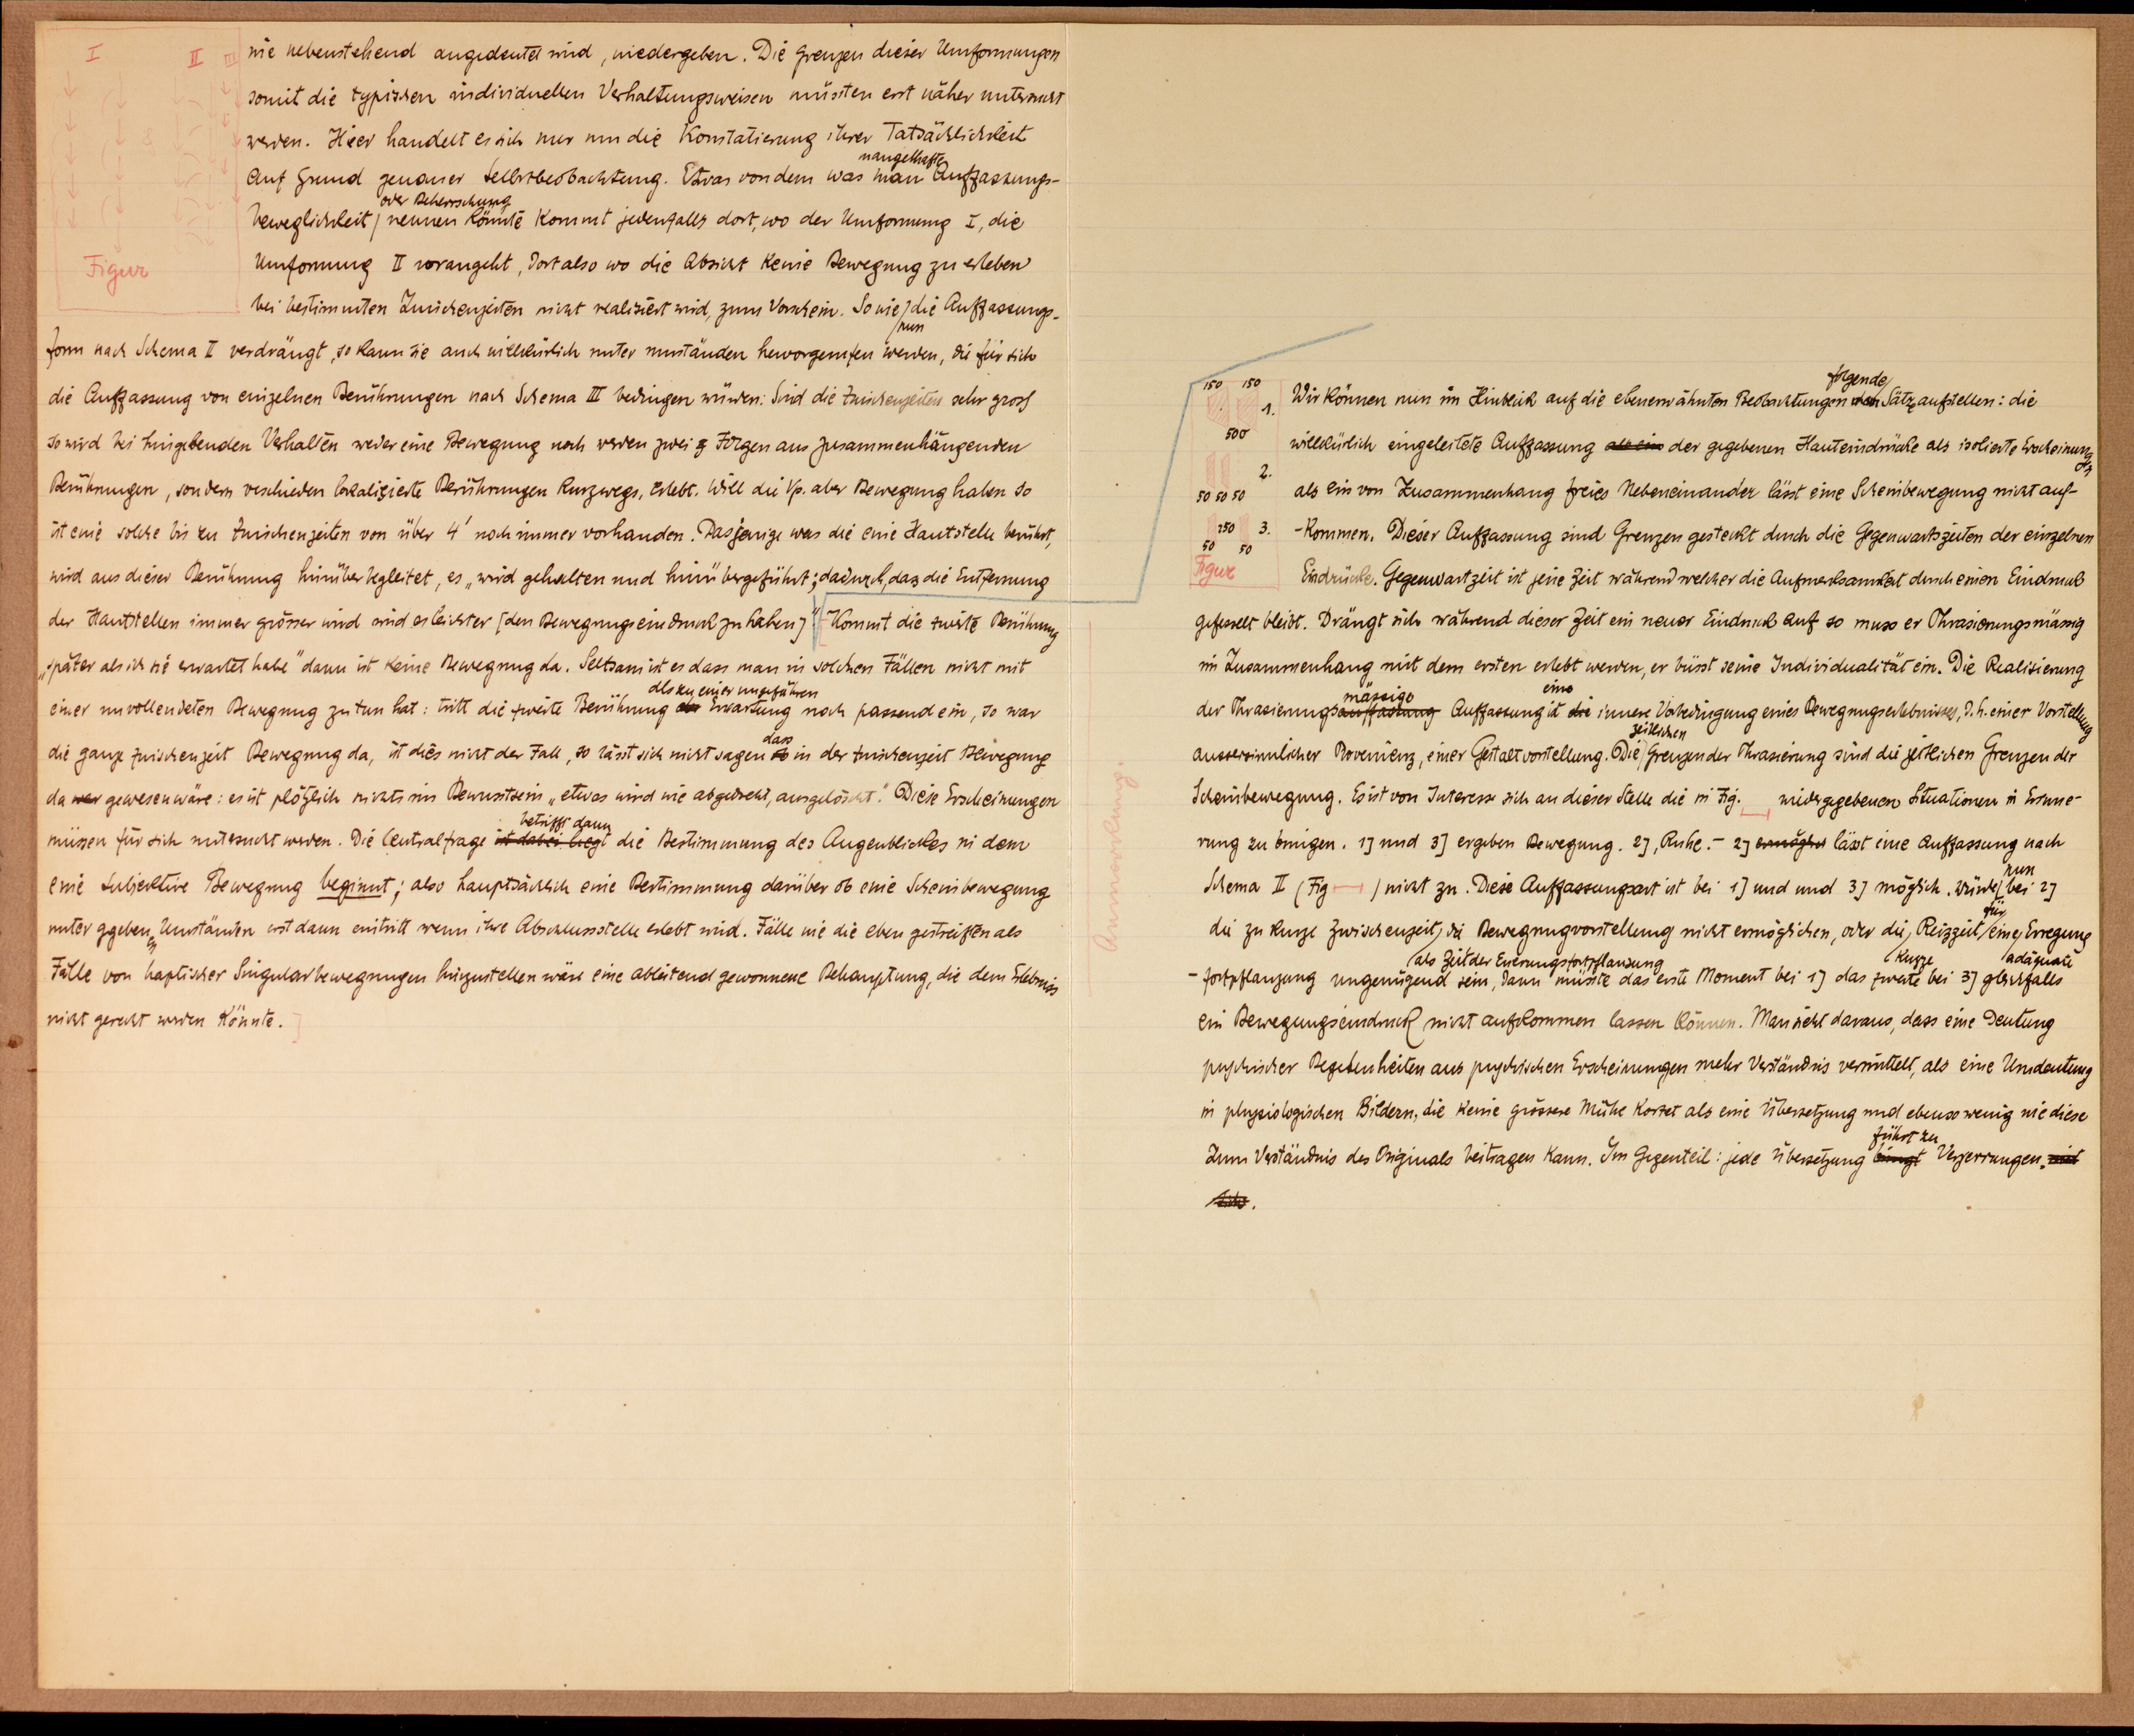 I II III
Figur
wie nebenstehend angedeutet wird, niedergeben. Die Grenzen dieser Umformungen
somit die typischen individuellen Verhaltungsweisen müssten erst näher untersucht
werden. Hier handelt es sich nur um die Konstatierung ihrer Tatsächlichkeit
mangelhafte
auf Grund genauer Selbstbeobachtung. Etwas von dem was man Auffassungs-
oder Beherrschung
beweglichkeit / nennen könnte kommt jedenfalls dort, wo der Umformung I, die
Umformung II vorangeht, dort also wo die Absicht keine Bewegung zu erleben
bei bestimmten Zwischenzeiten nicht realisiert wird, zum Vorschein. So wie / die Auffassungs-
nun
form nach Schema II verdrängt, so kann sie auch willkürlich unter umständen hervorgerufen werden, die für sich
die Auffassung von einzelnen Berührungen nach Schema III bedingen würden: Sind die Zwischenzeiten sehr gross
so wird bei hingebenden Verhalten weder eine Bewegung noch werden zwei Folgen aus zusammenhängenden
Berührungen, sondern verschieden lokalisierte Berührungen kurzwegs, erlebt. Will die Vp. aber Bewegung haben so
ist eine solche bis zu Zwischenzeiten von über 4' noch immer vorhanden. Dasjenige was die eine Hautstelle berührt,
wird aus dieser Berührung hinüber begleitet, es „wird gehalten und hinübergeführt; dadurch, dass die Entfernung
der Hautstellen immer grösser wird wird es leichter [den Bewegungseindruck zu haben]" Kommt die zweite Berührung
„später als ich sie erwartet habe" dann ist keine Bewegung da. Seltsam ist es dass man in solchen Fällen nicht mit
als zu einer ungefähren
einer unvollendeten Bewegung zu tun hat: tritt die zweite Berührung der Erwartung noch passend ein, so war
dass
die ganze Zwischenzeit Bewegung da, ist dies nicht der Fall, so lässt sich nicht sagen in der Zwischenzeit Bewegung
da war gewesen wäre: es ist plötzlich nichts im Bewusstsein „etwas wird wie abgedreht, ausgelöscht". Diese Erscheinungen
betrifft dann
müssen für sich untersucht werden. Die Centralfrage ist dabei liegt die Bestimmung des Augenblickes in dem
eine subjektive Bewegung beginnt; also hauptsächlich eine Bestimmung darüber ob eine Scheinbewegung
unter gegebenen Umständen erst dann eintritt wenn ihre Abschlussstelle erlebt wird. Fälle wie die eben gestreiften als
Fälle von haptischer Singularbewegungen hinzustellen wäre eine ableitend gewonnene Behauptung, die dem Erlebnis
nicht gerecht werden könnte.]
Anmerkung.
150 150
1.
50σ
2.
50 50 50
150 3.
50 50
Figur
folgende
Wir können nun im Hinblick auf die ebenerwähnten Beobachtungen den Sätze aufstellen: die
willkürlich eingeleitete Auffassung als ein der gegebenen Hauteindrücke als isolierte Erscheinung
als ein von Zusammenhang freies Nebeneinander lässt eine Scheinbewegung nicht auf-
-kommen. Dieser Auffassung sind Grenzen gesteckt durch die Gegenwartszeiten der einzelnen
Eindrücke. Gegenwartzeit ist jene Zeit während welcher die Aufmerksamkeit durch einen Eindruck
gefesselt bleibt. Drängt sich während dieser Zeit ein neuer Eindruck auf so muss er Phrasierungsmässig
im Zusammenhang mit dem ersten erlebt werden, er büsst seine Individualität ein. Die Realisierung
mässige eine
der Phrasierungsauffassung Auffassung ist die innere Vorbedingung eines Bewegungserlebnisses, d.h. einer Vorstellung
zeitlichen
aussersinnlicher Provenienz, einer Gestaltvorstellung. Die / Grenzen der Phrasierung sind die zeitlichen Grenzen der
Scheinbewegung. Es ist von Interesse sich an dieser Stelle die in Fig. wiedergegebenen Situationen in Erinne-
rung zu bringen. 1] und 3] ergeben Bewegung. 2], Ruhe. - 2] ermöglicht lässt eine Auffassung nach
nun
Schema II (Fig ) nicht zu. Diese Auffassungsart ist bei 1] und und 3] möglich. Würde / bei 2]
für
die zu kurze Zwischenzeit, die Bewegungvorstellung nicht ermöglichen, oder die / Reizzeit / eine / Erregung
als Zeit der Erregungsfortpflanzung kurze adäquate
-fortpflanzung ungenügend sein, dann müsste das erste Moment bei 1] das zweite bei 3] gleichfalls
ein Bewegungseindruck nicht aufkommen lassen können. Man sieht daraus, dass eine Deutung
psychischer Begebenheiten aus psychischen Erscheinungen mehr Verständnis vermittelt, als eine Umdeutung
in physiologischen Bildern, die keine grössere Mühe kostet als eine Übersetzung und ebenso wenig wie diese
führt zu
zum Verständnis des Originals beitragen kann. Im Gegenteil: jede Übersetzung bringt Verzerrungen.